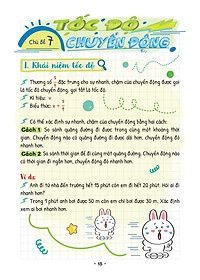 Chủ đề 7
TỐC ĐỘ
CHUYỂN ĐỘNG
1. Khái niệm tốc độ
Thương số s/t đặc trưng cho sự nhanh, chậm của chuyển động được gọi
là tốc độ chuyển động, gọi tắt là tốc độ.
Kí hiệu: v
Biểu thức: v = s/t
Có thể xác định sự nhanh, chậm của chuyển động bằng hai cách:
Cách 1 So sánh quãng đường đi được trong cùng một khoảng thời
gian. Chuyển động nào có quãng đường đi được dài hơn, chuyển động đó
nhanh hơn.
Cách 2 So sánh thời gian để đi cùng một quãng đường. Chuyển động nào
có thời gian đi ngắn hơn, chuyển động đó nhanh hơn.
Ví dụ:
Anh đi từ nhà đến trường hết 15 phút còn em đi hết 20 phút. Hỏi ai đi
nhanh hơn?
Trong 1 phút anh bơi được 50 m còn em chỉ bơi được 30 m. Xác định
xem ai bơi nhanh hơn.